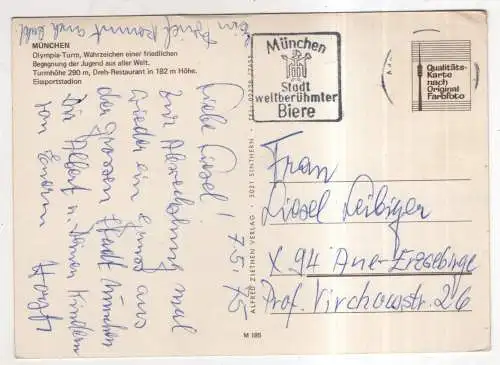 Ein Brief kommt auch bald
MÜNCHEN
Olympia-Turm, Wahrzeichen einer friedlichen
Begegnung der Jugend aus aller Welt.
Turmhöhe 290 m, Dreh-Restaurant in 182 m Höhe.
Eissportstadion
7.5.75
Liebe Liesel!
Zur Abwechslung mal
wieder ein Gruß aus
der grossen Stadt München
Dir, Albert u. Deinen Kindern
von Eurem Horst
ALFRED ZIETHEN VERLAG · 5021 SINTHERN · TEL. 02238/7353
M 185
München
Stadt
weltberühmter
Biere
Qualitäts-
Karte
nach
Original
Farbfoto
Frau
Liesel Leibiger
X 94 Aue-Erzgebirge
Prof. Virchowstr. 26